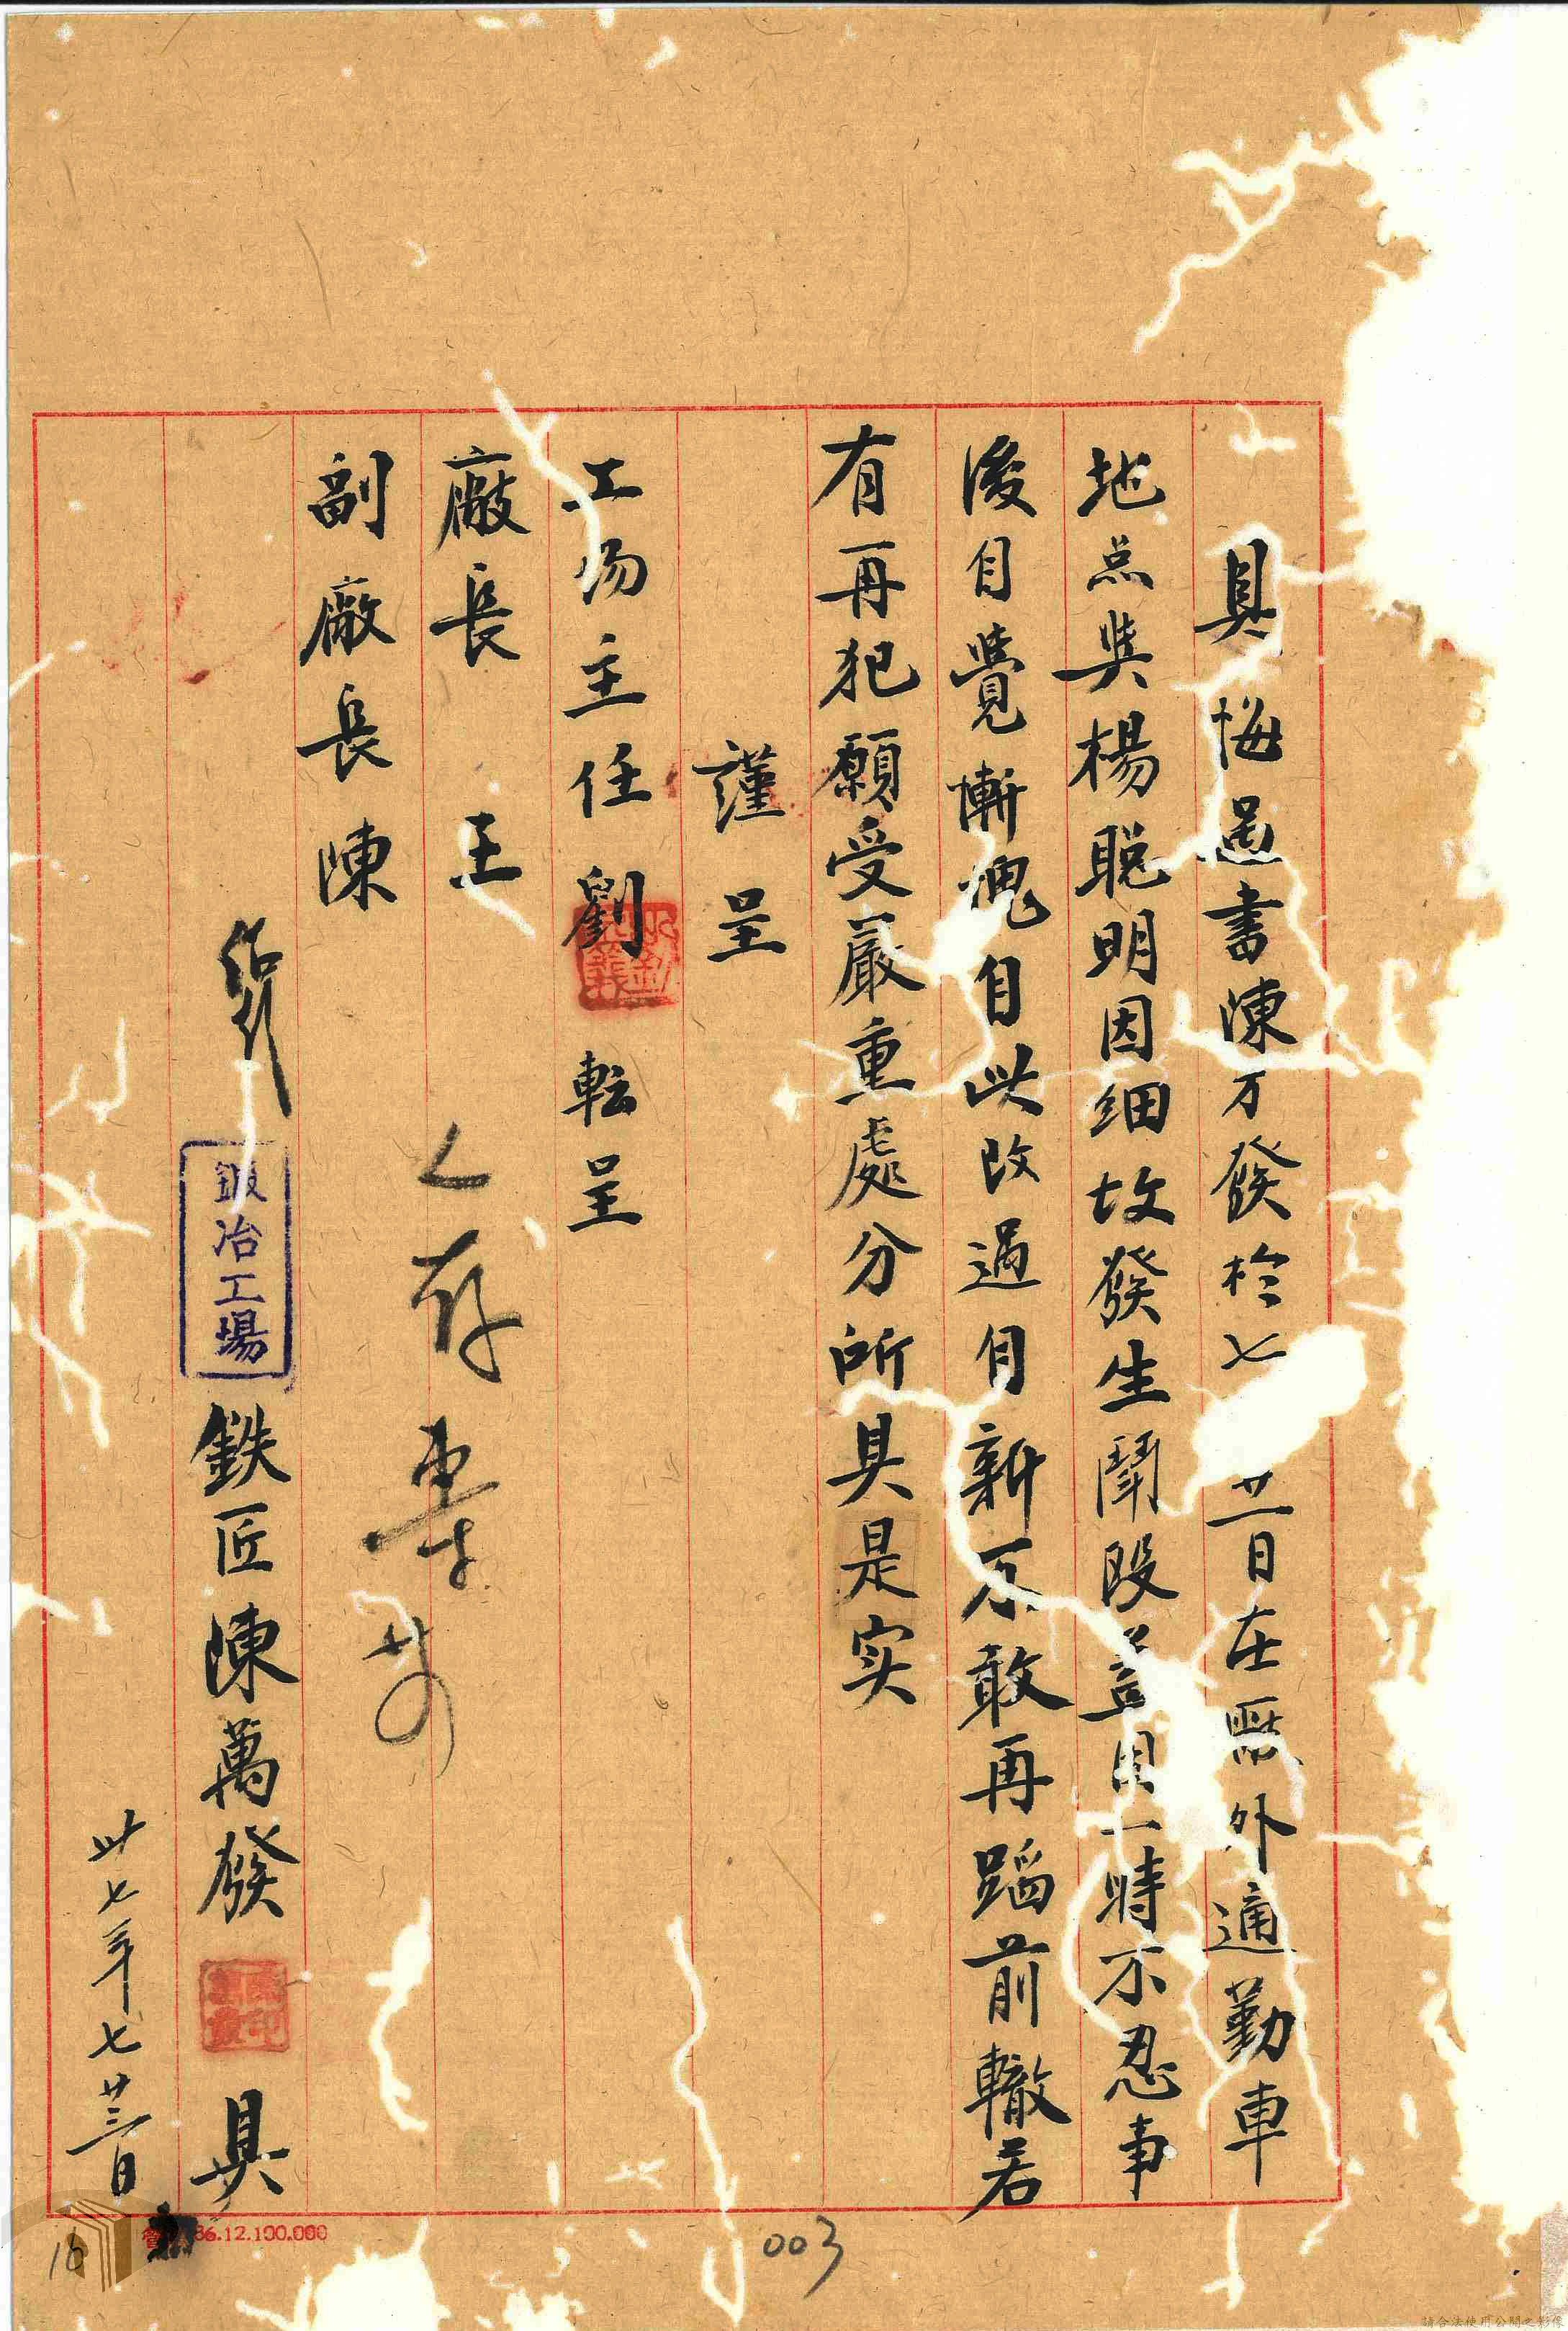 具悔過書陳万發於七廿一日在厰外適勤車
地点與楊聰明因細故發生鬪毆盖因一時不忍事
後自覺慚愧自此改過自新不敢再蹈前轍若
有再犯願受嚴重處分所具是实
謹呈
工场主任劉 転呈
廠長 王
副廠長陳
存
鍛冶工場
鉄匠陳萬發 具
卅七年七廿三日
36.12.100.000
003
16
請合法使用公開之影像